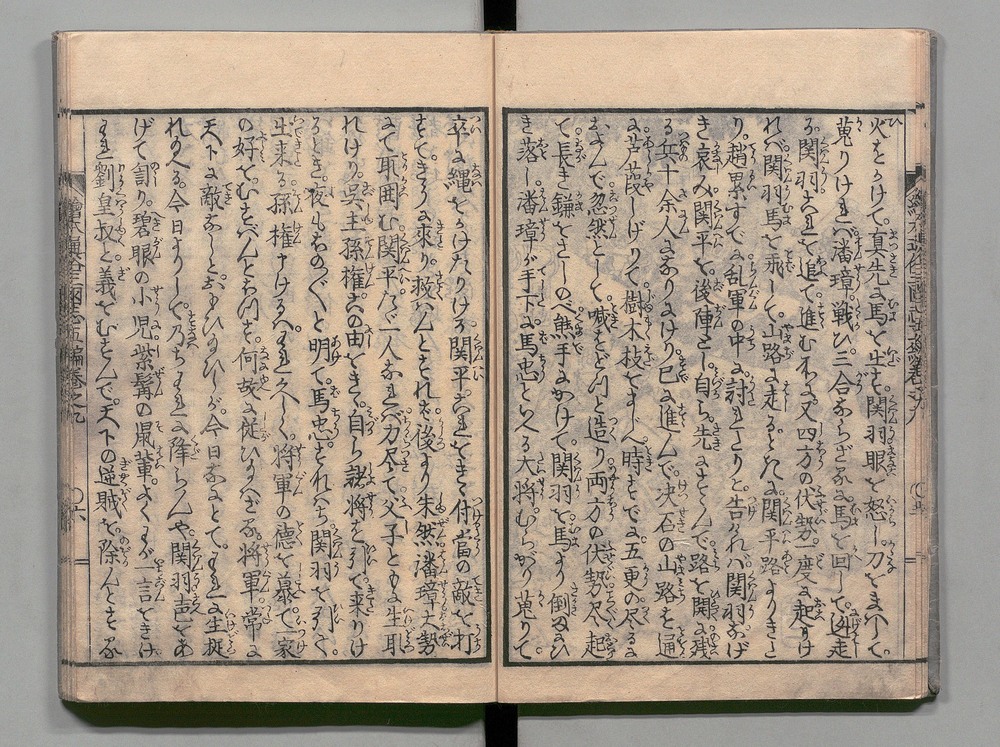 火をかけて。真先に馬を出す。関羽眼を怒し刀をまハして。
蒐りけれバ潘璋戦ひ三合ならざるに馬を回して逃走
る。関羽これを追て進むわに又四方の伏勢一度に起りけ
れバ関羽馬を飛して山路に走るときに関平路よりきた
り。趙累すでに乱軍の中に討れたりと告ければ関羽なげ
き哀ミ関平を後陣とし。自ら先にすゝんで。路を開き残
る兵十余人になりにけり已に進んで。决石の山路を通
るに芦葭しげりて樹木枝をまじへ時すでに五更の尽る
なんで忽然として。喊をどつと造り両方の伏勢尽く起
て。長き鎌をさしのべ熊手にかけて。関羽を馬より倒にひ
き落し潘璋が手下に馬忠といへる大将。むらがり蒐りて
卒に縄をかけたりける関平これをきゝ付當の敵を打
すてきたり來り。救ハんとすれば後より朱然潘璋大勢
にて取囲む関平たゞ一人なれバ力尽て父子ともに生取
れけり。呉主孫権この由をきゝ。自ら諸将を引て来りけ
るとき。夜もほの〴〵と明て馬忠すなハち関羽を引て
生来る。孫権申けるハ。われ久しく。将軍の徳を慕て一家
の好をむすばんとおもひしに。何故に従ひ給ハざる。将軍常に
天下に敵なしとおもひ給ひしが今日なにとて。われに生捉
れ給へる。今日よりして乃ちわれに降らんや。関羽声をあ
げて罵り。碧眼の小児紫髯の鼠輩。よくわが一言をきけ
われ劉皇叔と義をむすんで。天下の逆賊を除んとする